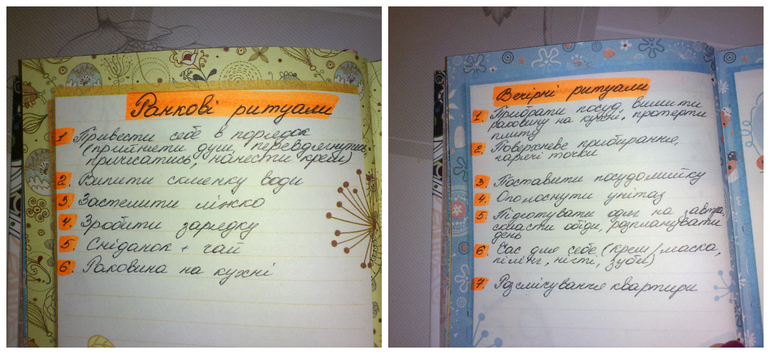 Ранкові ритуали
1. Привести себе в порядок
(прийняти душ, перевдягнутись,
причисатись, нанести крем)
2. Випити склянку води
3. Застелити ліжко
4. Зробити зарядку
5. Сніданок + чай
6. Раковина на кухні
Вечірні ритуали
1. Прибрати посуд, вимити
раковину на кухні, протерти
плиту
2. Поверхневе прибирання,
гарячі точки
3. Поставити посудомийку
4. Ополоснути унітаз
5. Підготувати одяг на завтра,
скласти обіди, розпланувати
день
6. Час для себе (крем/маска,
пілінг, нігті, зуби)
7. Розсмічування квартири